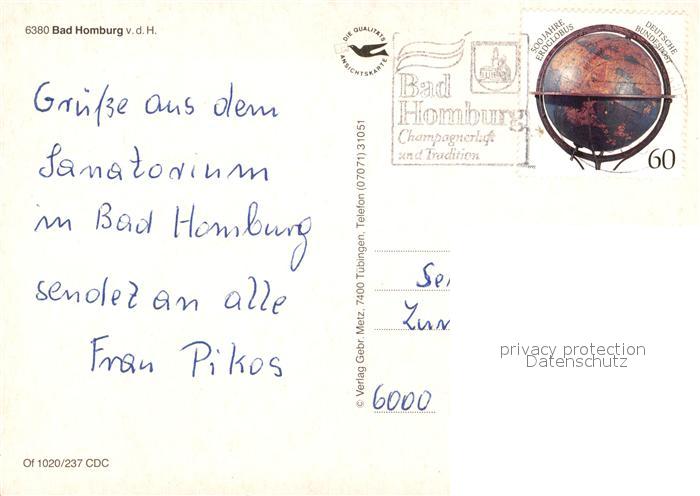 6380 Bad Homburg v. d. H.
DIE QUALITÄTS
ANSICHTSKARTE
Bad
Homburg
Champagnerluft
und Tradition
500 JAHRE
ERDGLOBUS
DEUTSCHE
BUNDESPOST
60
Grüße aus dem
Sanatorium
in Bad Homburg
sendet an alle
Frau Pikos
© Verlag Gebr. Metz, 7400 Tübingen, Telefon (07071) 31051
6000
privacy protection
Datenschutz
Of 1020/237 CDC